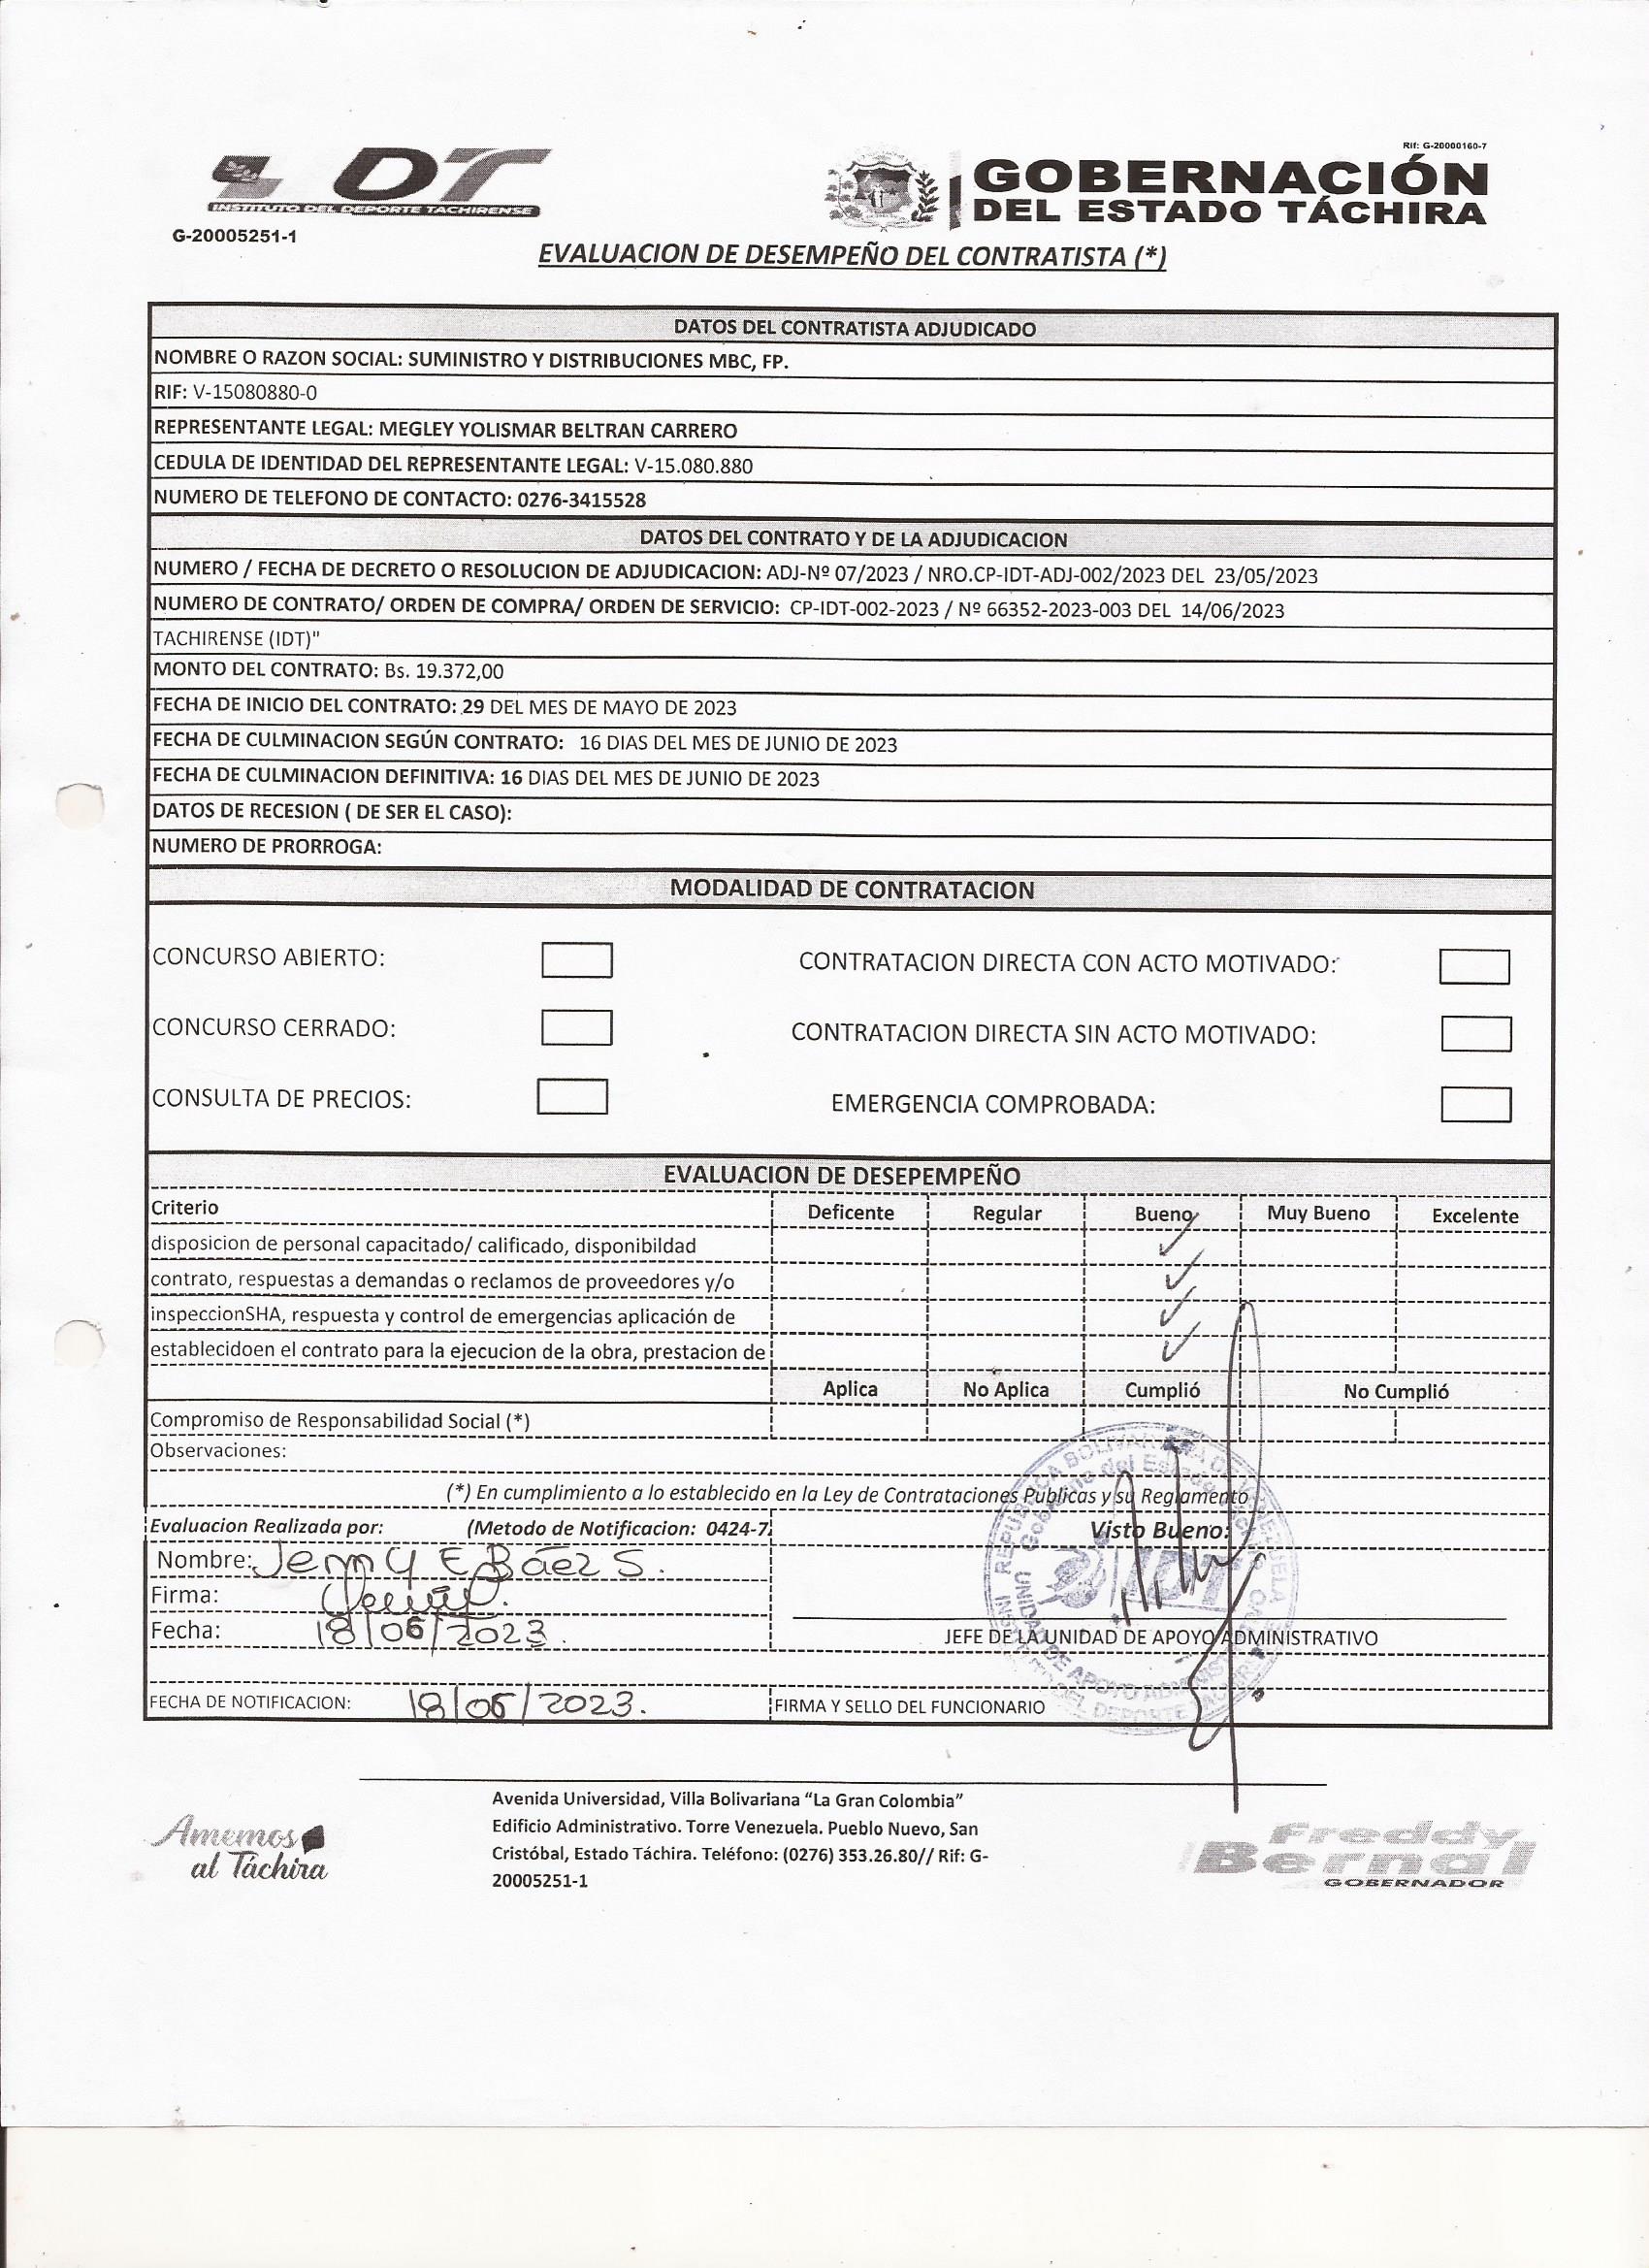 Rif: G-20000160-7
IDT
INSTITUTO DEL DEPORTE TACHIRENSE
G-20005251-1
GOBERNACIÓN
DEL ESTADO TÁCHIRA
EVALUACION DE DESEMPEÑO DEL CONTRATISTA (*)
DATOS DEL CONTRATISTA ADJUDICADO
NOMBRE O RAZON SOCIAL: SUMINISTRO Y DISTRIBUCIONES MBC, FP.
RIF: V-15080880-0
REPRESENTANTE LEGAL: MEGLEY YOLISMAR BELTRAN CARRERO
CEDULA DE IDENTIDAD DEL REPRESENTANTE LEGAL: V-15.080.880
NUMERO DE TELEFONO DE CONTACTO: 0276-3415528
DATOS DEL CONTRATO Y DE LA ADJUDICACION
NUMERO / FECHA DE DECRETO O RESOLUCION DE ADJUDICACION: ADJ-Nº 07/2023 / NRO.CP-IDT-ADJ-002/2023 DEL 23/05/2023
NUMERO DE CONTRATO/ ORDEN DE COMPRA/ ORDEN DE SERVICIO: CP-IDT-002-2023 / Nº 66352-2023-003 DEL 14/06/2023
TACHIRENSE (IDT)"
MONTO DEL CONTRATO: Bs. 19.372,00
FECHA DE INICIO DEL CONTRATO: 29 DEL MES DE MAYO DE 2023
FECHA DE CULMINACION SEGÚN CONTRATO: 16 DIAS DEL MES DE JUNIO DE 2023
FECHA DE CULMINACION DEFINITIVA: 16 DIAS DEL MES DE JUNIO DE 2023
DATOS DE RECESION ( DE SER EL CASO):
NUMERO DE PRORROGA:
MODALIDAD DE CONTRATACION
CONCURSO ABIERTO: CONTRATACION DIRECTA CON ACTO MOTIVADO:
CONCURSO CERRADO: CONTRATACION DIRECTA SIN ACTO MOTIVADO:
CONSULTA DE PRECIOS: EMERGENCIA COMPROBADA:
EVALUACION DE DESEPEMPEÑO
Criterio Deficente Regular Bueno Muy Bueno Excelente
disposicion de personal capacitado/ calificado, disponibildad ✓
contrato, respuestas a demandas o reclamos de proveedores y/o ✓
inspeccionSHA, respuesta y control de emergencias aplicación de ✓
establecidoen el contrato para la ejecucion de la obra, prestacion de ✓
Aplica No Aplica Cumplió No Cumplió
Compromiso de Responsabilidad Social (*)
Observaciones:
(*) En cumplimiento a lo establecido en la Ley de Contrataciones Publicas y su Reglamento
Evaluacion Realizada por: (Metodo de Notificacion: 0424-7 Visto Bueno:
Nombre: Jenny E Báez S.
Firma:
Fecha: 18/06/2023.
JEFE DE LA UNIDAD DE APOYO ADMINISTRATIVO
FECHA DE NOTIFICACION: 18/06/2023. FIRMA Y SELLO DEL FUNCIONARIO
Avenida Universidad, Villa Bolivariana “La Gran Colombia”
Edificio Administrativo. Torre Venezuela. Pueblo Nuevo, San
Cristóbal, Estado Táchira. Teléfono: (0276) 353.26.80// Rif: G-
20005251-1
Amemos
al Táchira
Freddy
Bernal
GOBERNADOR